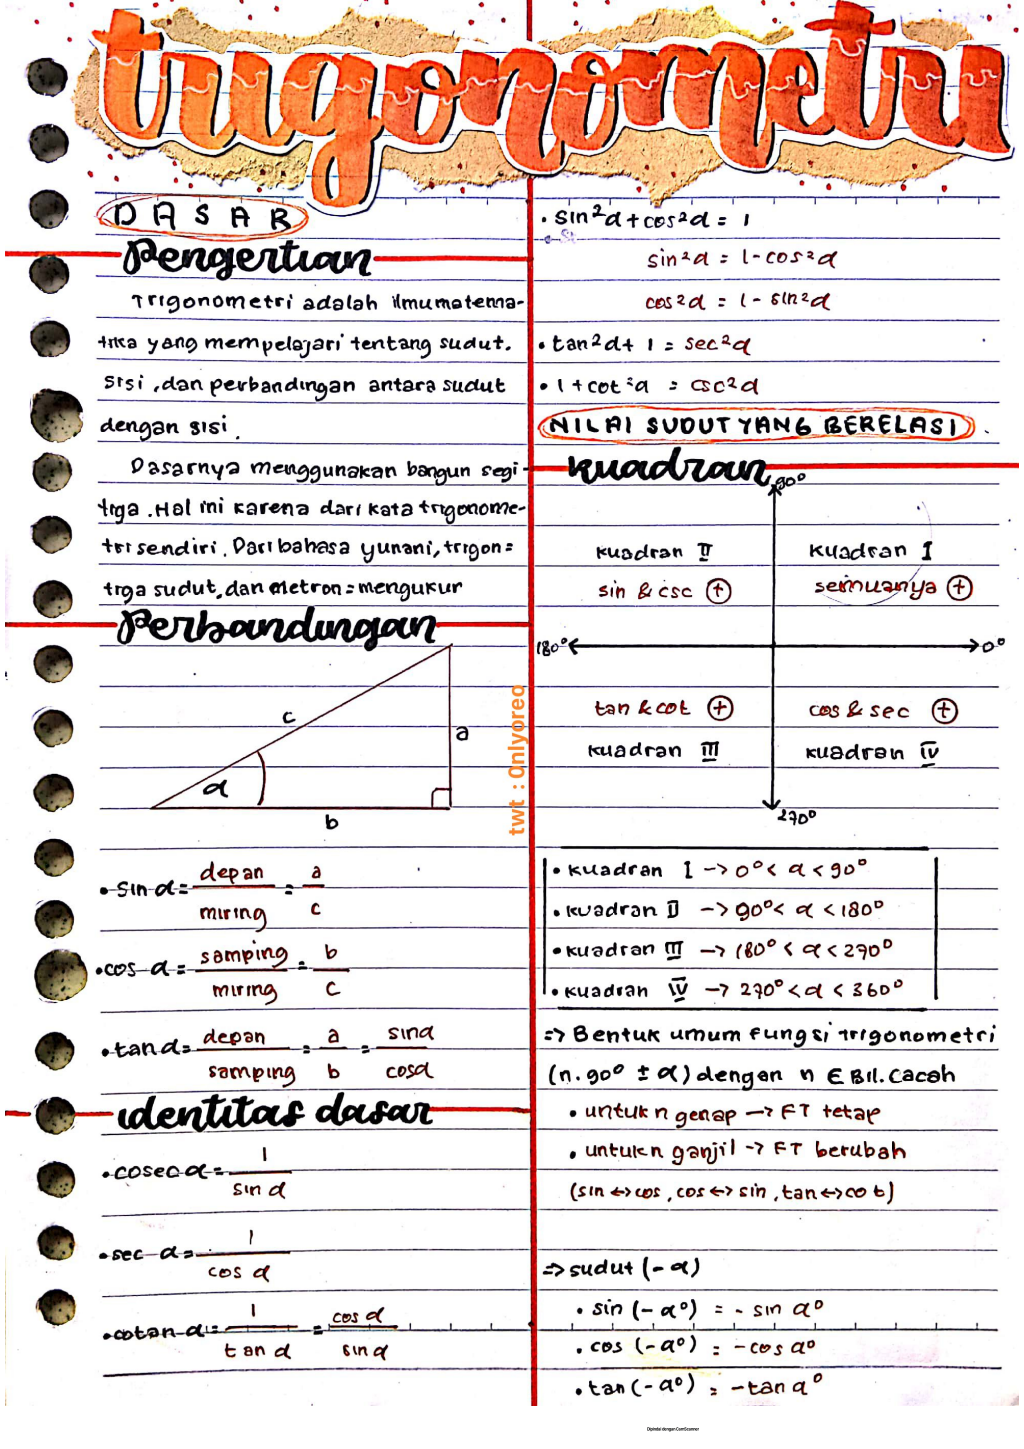 trigonometri
DASAR
Pengertian
Trigonometri adalah ilmu matema-
tika yang mempelajari tentang sudut.
sisi, dan perbandingan antara sudut
dengan sisi.
Dasarnya menggunakan bangun segi-
tiga. Hal ini karena dari kata trigonome-
tri sendiri. Dari bahasa yunani, trigon =
tiga sudut, dan metron = mengukur
Perbandingan
c
a
α
b
• sin α = depan/miring = a/c
• cos α = samping/miring = b/c
• tan α = depan/samping = a/b = sin α/cos α
identitas dasar
• cosec α = 1/sin α
• sec α = 1/cos α
• cotan α = 1/tan α = cos α/sin α
twt : Onlyoreo
• sin²α + cos²α = 1
sin²α = 1 - cos²α
cos²α = 1 - sin²α
• tan²α + 1 = sec²α
• 1 + cot²α = csc²α
NILAI SUDUT YANG BERELASI
kuadran
90°
kuadran II
kuadran I
sin & csc (+)
semuanya (+)
180°
0°
tan & cot (+)
cos & sec (+)
kuadran III
kuadran IV
270°
• kuadran I -> 0° < α < 90°
• kuadran II -> 90° < α < 180°
• kuadran III -> 180° < α < 270°
• kuadran IV -> 270° < α < 360°
=> Bentuk umum fungsi trigonometri
(n.90° ± α) dengan n ∈ Bil. Cacah
• untuk n genap -> FT tetap
• untuk n ganjil -> FT berubah
(sin ↔ cos, cos ↔ sin, tan ↔ cot)
=> sudut (-α)
• sin (-α°) = - sin α°
• cos (-α°) = -cos α°
• tan (-α°) = -tan α°
Dipindai dengan CamScanner